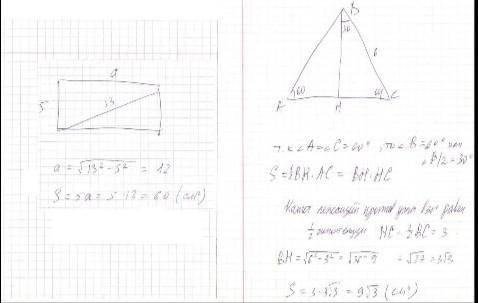 a
5
13
a = √13² - 5² = 12
S = 5a = 5·12 = 60 (см²)
B
30
6
60
60
A
H
C
т.к ∠A = ∠C = 60°, то ∠B = 60° или
∠B/2 = 30°
S = ½BH·AC = BH·HC
Катет лежащий против угла 30° равен
½ гипотенузы HC = ½BC = 3
BH = √6² - 3² = √36 - 9 = √27 = 3√3
S = 3·3√3 = 9√3 (см²)